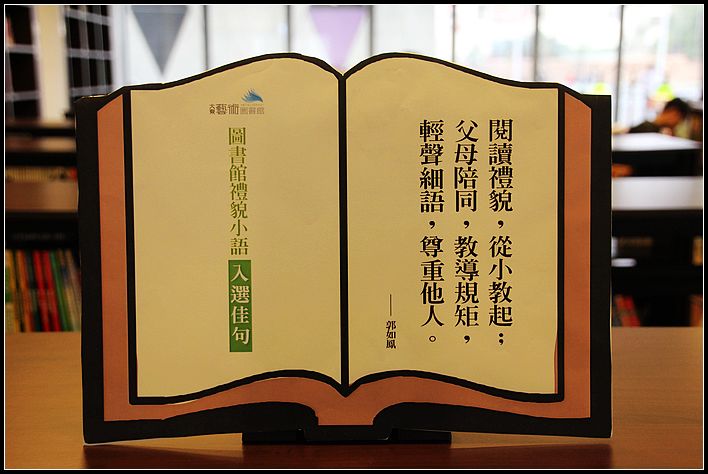 閱讀禮貌，從小教起；
父母陪同，教導規矩，
輕聲細語，尊重他人。
——郭如鳳
大東藝術圖書館
圖書館禮貌小語
入選佳句